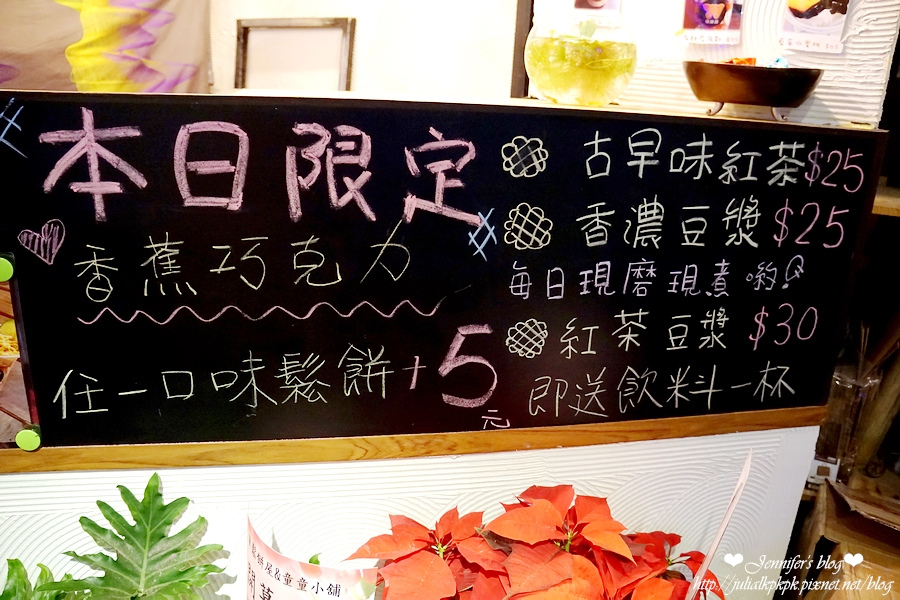 本日限定
香蕉巧克力
任一口味鬆餅+5元
即送飲料一杯
古早味紅茶$25
香濃豆漿$25
每日現磨現煮喲!
紅茶豆漿$30
鬆餅屋&童童小舖
Jennifer's blog
http://julialkpkpk.pixnet.net/blog